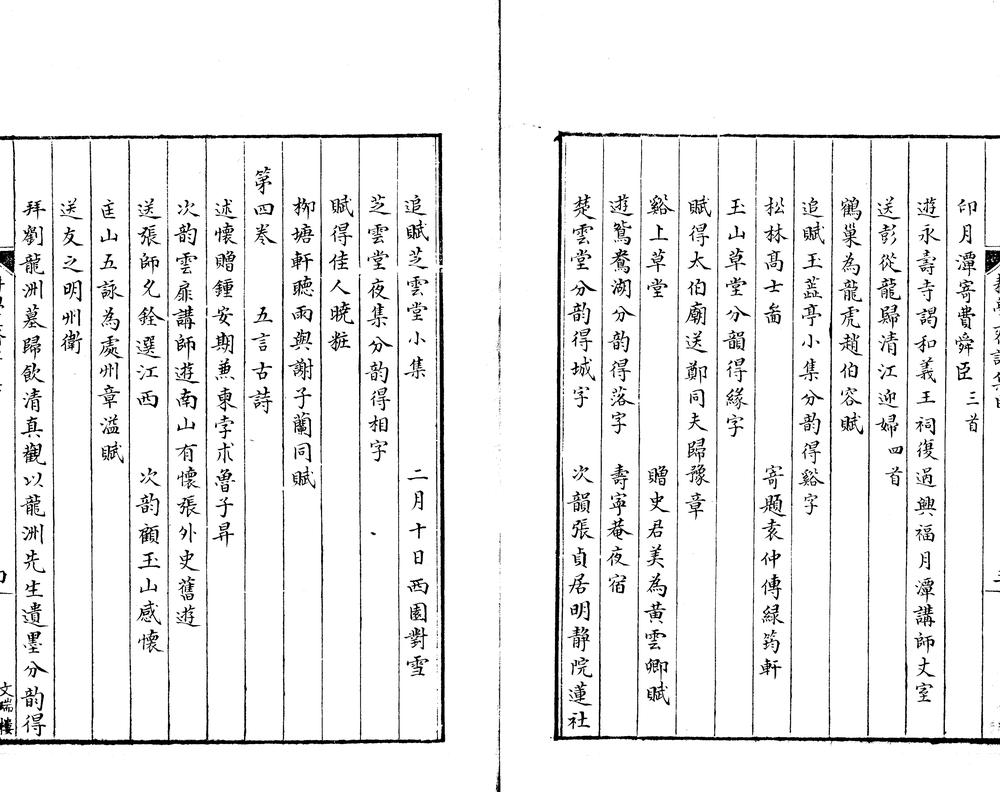 印月潭寄費舜臣三首
遊永壽寺謁和義王祠復過興福月潭講師丈室
送彭從龍歸清江迎婦四首
鶴巢為龍虎趙伯容賦
追賦玉蕋亭小集分韵得谿字
松林髙士啚　寄題袁仲傳緑筠軒
玉山草堂分韻得緣字
賦得太伯廟送鄭同夫歸豫章
谿上草堂　贈史君美為黄雲卿賦
遊鴛鴦湖分韵得落字　壽寜菴夜宿
楚雲堂分韵得城字　次韻張貞居明静院蓮社
追賦芝雲堂小集　二月十日西園對雪
芝雲堂夜集分韵得相字
賦得佳人曉粧
栁塘軒聽雨與謝子蘭同賦
第四卷　五言古詩
述懷贈鍾安期兼柬孛朮魯子昇
次韵雲扉講師遊南山有懷張外史舊遊
送張師允銓選江西　次韵顧玉山感懷
匡山五詠為處州章溢賦
送友之明州衛
拜劉龍洲墓歸飲清真觀以龍洲先生遺墨分韵得
文瑞樓